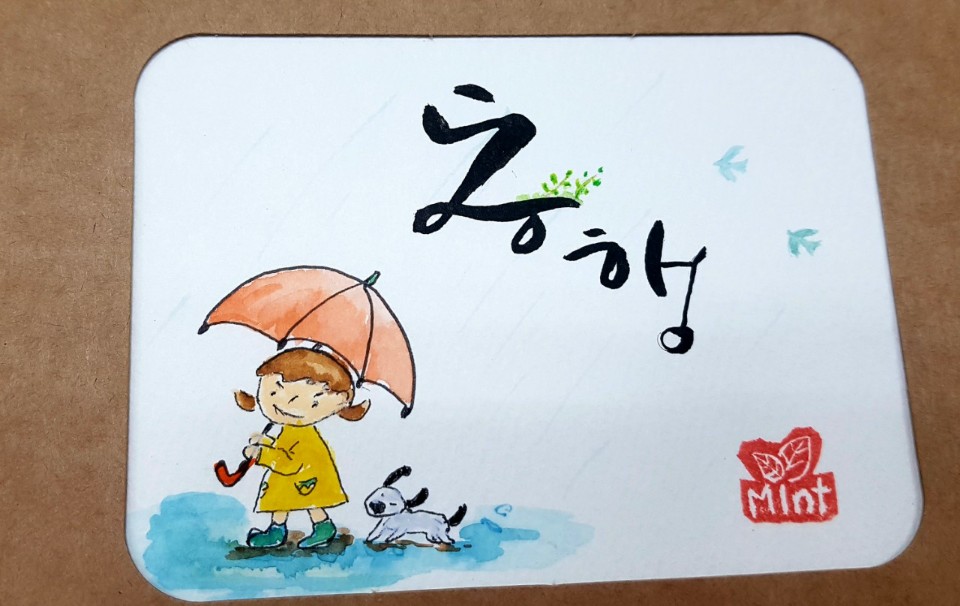 동행
Mint